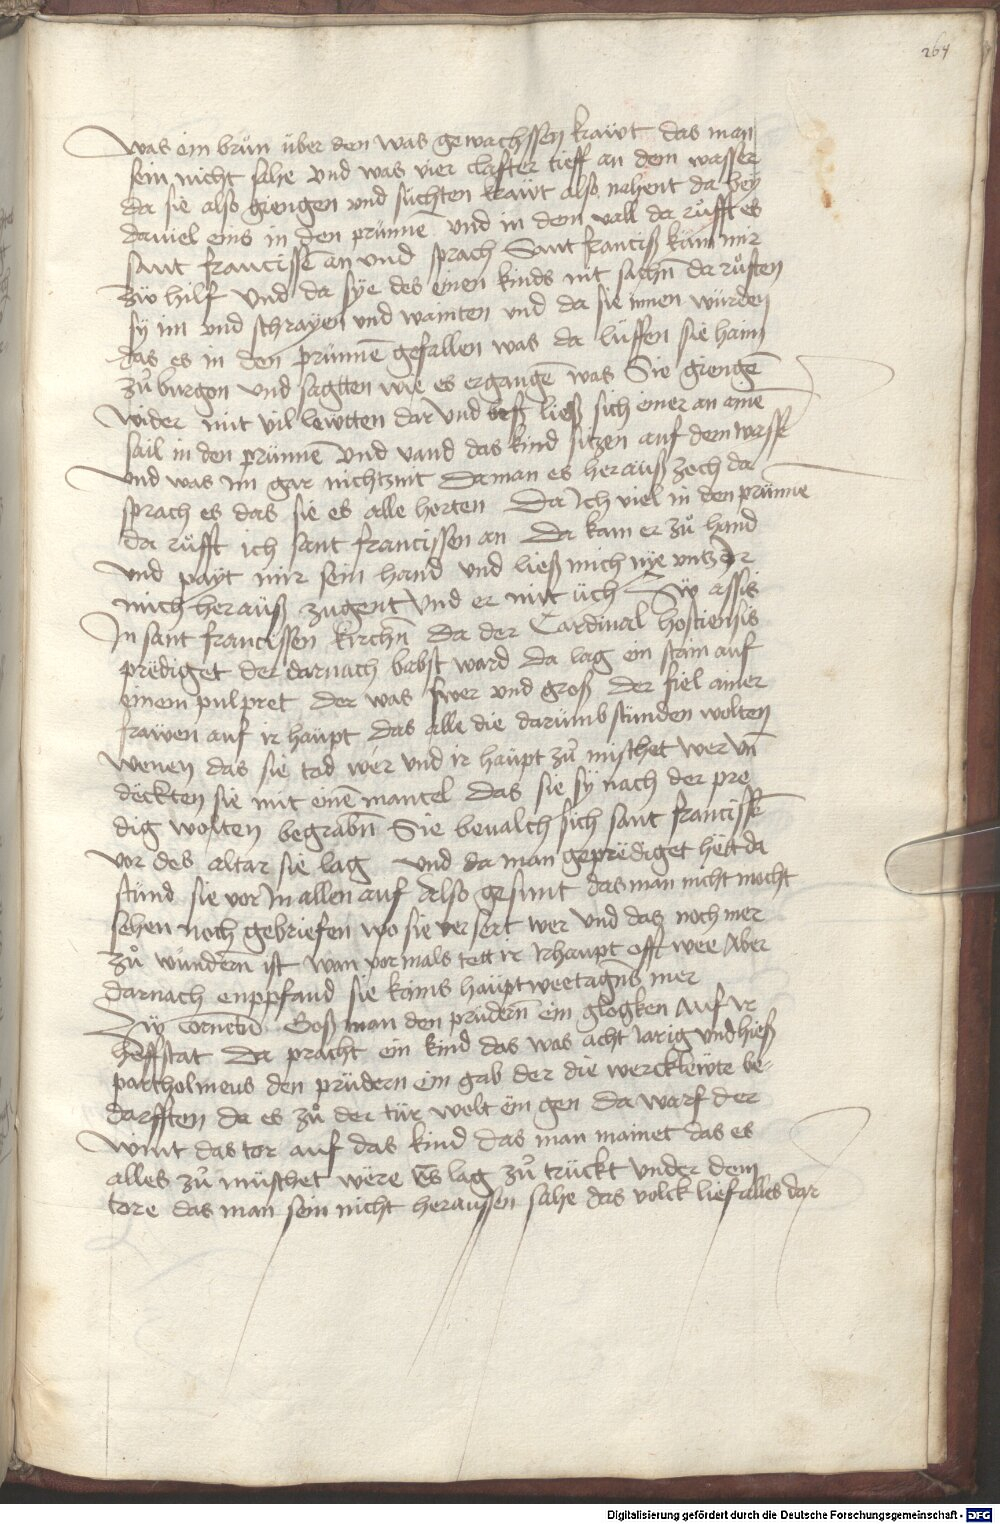 264
was ein brün über den was gewachssen krawt das man
sein nicht sahe vnd was vier clafter tieff an dem wasser
da sie also giengen vnd suchten krawt also nahent da bey
da viel eins in den prünnē vnd in dem vall da rüfft es
sant francissē an vnd sprach Sant franciß kum mir
zw hilf Vnd da sye des einen kinds nit sachn̄ da rüften
sy im vnd schrayen vnd wainten vnd da sie innen würden
das es in den prünnē gefallen was da lüffen sie haim
zů burgon vnd sagtten wie es ergangē was Sie giengē
wider mit vil lewtten dar vnd ließ sich einer an ainē
sail in den prünnē vnd vand das kind sitzen auf dem wasß
vnd was im gar nichtznit Da man es herauß zoch da
sprach es das sie es alle horten Da ich viel in den prünne
da rüfft ich sant francissen an Da kam er zů hand
vnd payt mir sein hand vnd ließ mich nye vntz ir
mich herauß zugent Vnd er mit üch Zw assis
In sant francissen kirchn̄ Da der Cardinal hostiensis
prediget der darnach babst ward Da lag ein stain auf
einem pulpret der was swer vnd groß Der fiel ainer
frawen auf ir haupt das alle die darümb stünden wolten
wenen das sie tod wer vnd ir haupt zů misthet wer Vn̄
deckten sie mit einē mantel das sie sy nach der pre
dig wolten begrabn̄ Sie beualch sich sant francissē
vor des altar sie lag vnd da man geprediget hett da
stund sie vor In allen auf Also gesunt das man nicht mocht
sehen noch gebriefen wo sie versert wer vnd das noch mer
zů wundern̄ ist wan vormals tett ir Irhaupt offt wee Aber
darnach enppfand sie kains hauptweetagn̄s mer
Zw Goß man den prüdern̄ ein glogken Auf Ir
hoffstat Da pracht ein kind das was acht Iarig vnd hieß
partholmeus den prüdern ein gab der die wercklewte be-
darfften da es zů der tür wolt ein gen Da warf der
wint das tor auf das kind das man mainet das es
alles zů müschet were Es lag zů trückt vnder dem
tore das man sein nicht heraussen sahe das volck lief alles dar
Digitalisierung gefördert durch die Deutsche Forschungsgemeinschaft - DFG